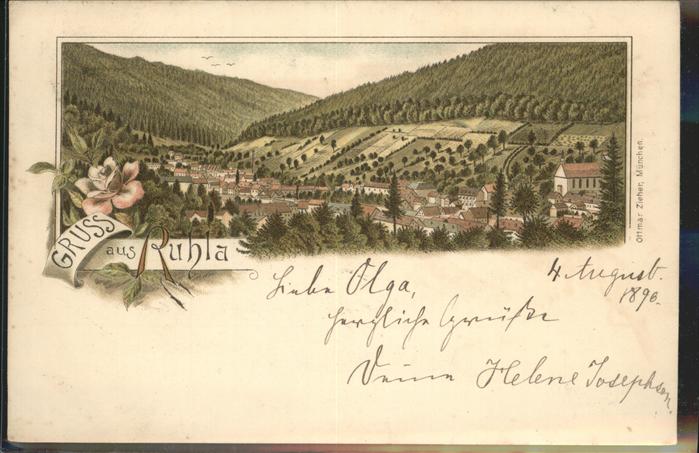 GRUSS
aus Ruhla
Ottmar Zieher, München.
4 August.
1896.
Liebe Olga,
herzliche Grüße
Deine Helene Josephson.